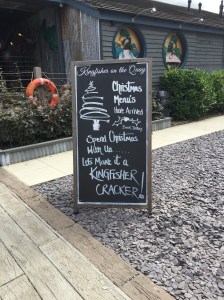 Kingfisher on the Quay
Christmas
Menu's
Have Arrived
Book Today
Spend Christmas
With Us
Lets Make it a
KINGFISHER
CRACKER!